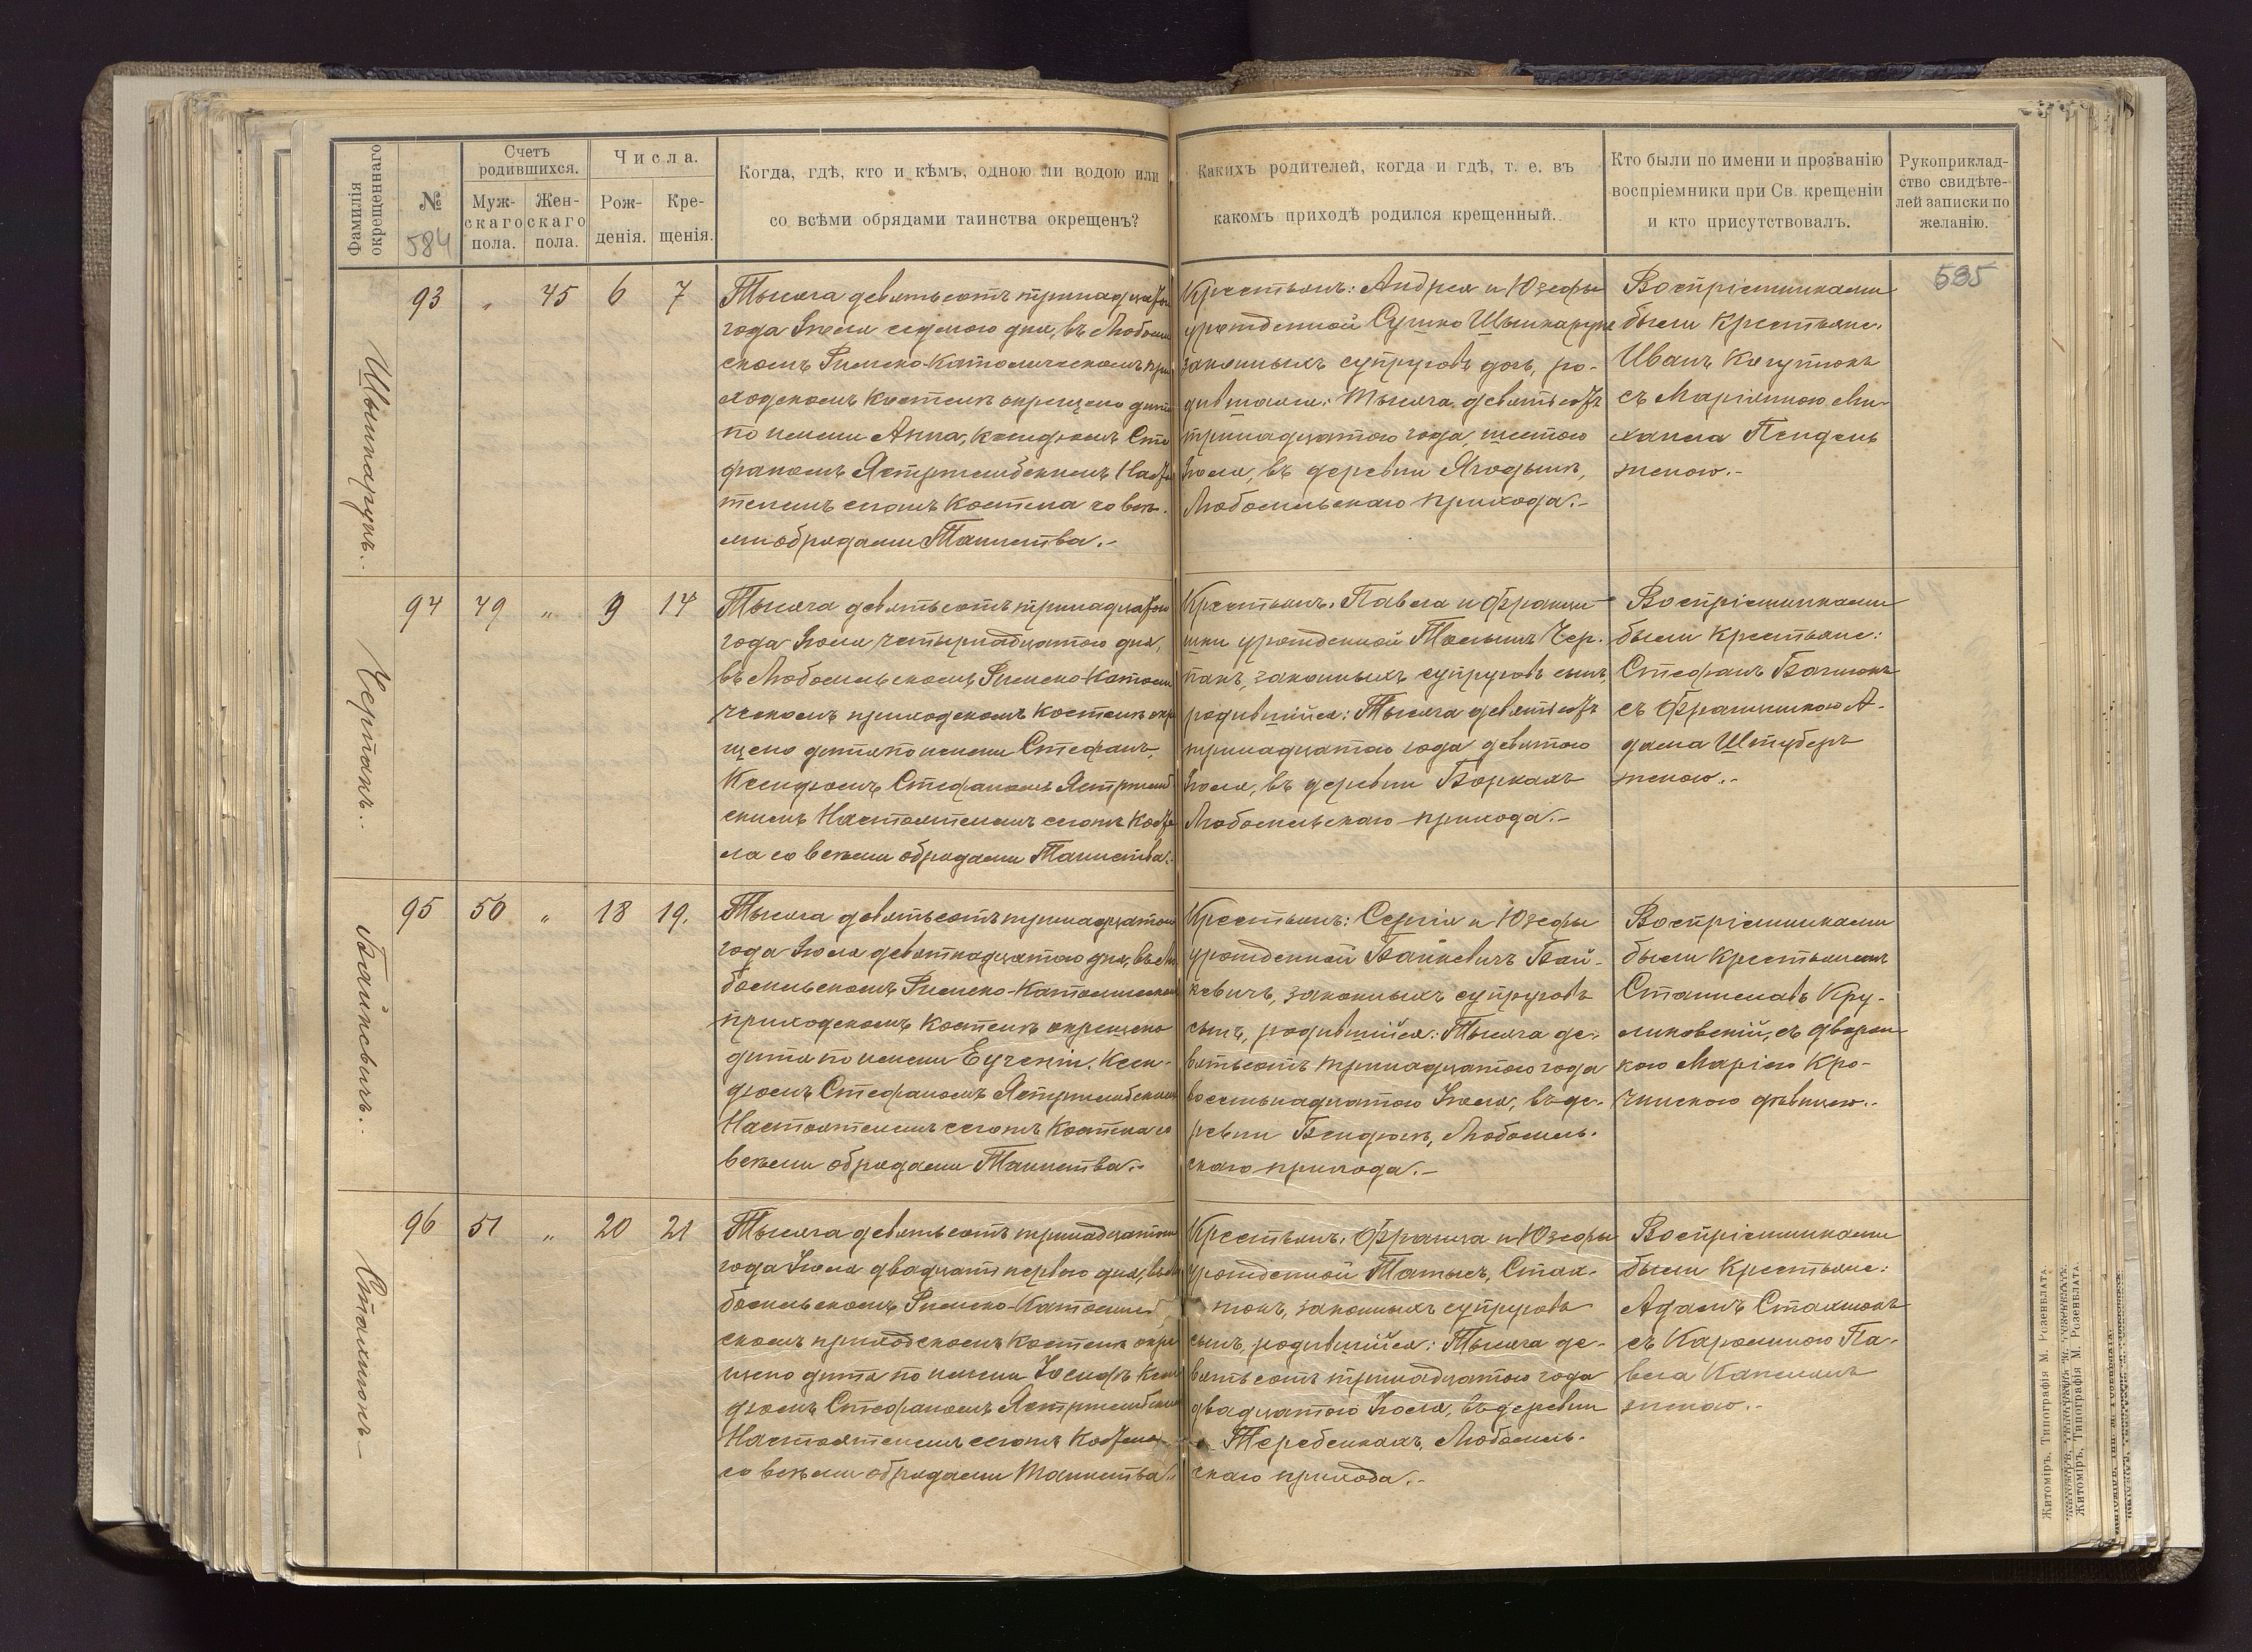 Фамилія окрещеннаго
№
584
Счетъ родившихся.
Муж-
скаго
пола.
Жен-
скаго
пола.
Числа.
Рож-
денія.
Кре-
щенія.
Когда, гдѣ, кто и кѣмъ, одною ли водою или
со всѣми обрядами таинства окрещенъ?
Какихъ родителей, когда и гдѣ, т. е. въ
какомъ приходѣ родился крещенный.
Кто были по имени и прозванію
воспріемники при Св. крещеніи
и кто присутствовалъ.
Рукоприклад-
ство свидѣте-
лей записки по
желанію.
585
93 „ 45 6 7
Тысяча девятьсотъ тринадцатого
года Іюля седьмого дня, въ Любомль
скомъ Римско-Католическомъ при
ходскомъ Костелѣ окрещено дитя
по имени Анна, Ксендзомъ Сте
фаномъ Ястржембскимъ Настоя
телемъ сегожъ Костела со всѣ-
ми обрядами Таинства.-
Крестьянъ: Андрея и Юзефы
урожденной Сушко
законныхъ супруговъ дочь, ро-
дившаяся: Тысяча девятьсотъ
тринадцатого года, шестого
Іюля, въ деревнѣ Ягодынѣ,
Любомльскаго прихода.-
Воспріемниками
были Крестьяне:
Иванъ
съ Маріянною Ми-
хаила Пендель
женою.-
94 49 „ 9 14
Черпакъ.-
Тысяча девятьсотъ тринадцатого
года Іюля четырнадцатого дня,
въ Любомльскомъ Римско-Католи
ческомъ приходскомъ Костелѣ окре
щено дитя по имени Стефанъ,
Ксендзомъ Стефаномъ Ястржемб
скимъ Настоятелемъ сегожъ Косте
ла со всѣми обрядами Таинства.-
Крестьянъ: Павла и Францишки
урожденной Чер-
пакъ, законныхъ супруговъ сынъ,
родившійся: Тысяча девятьсотъ
тринадцатого года девятого
Іюля, въ деревнѣ Боркахъ
Любомльскаго прихода.-
Воспріемниками
были Крестьяне:
Стефанъ
съ Францишкою А-
дама Штуберъ
женою.-
95 50 „ 18 19.
Байкевичъ.-
Тысяча девятьсотъ тринадцатого
года Іюля девятнадцатого дня, въ Лю
бомльскомъ Римско-Католическомъ
приходскомъ Костелѣ окрещено
дитя по имени Евгеній, Ксен-
дзомъ Стефаномъ Ястржембскимъ
Настоятелемъ сегожъ Костела со
всѣми обрядами Таинства.-
Крестьянъ: Сергія и Юзефы
урожденной Байкевичъ Бай-
кевичъ, законныхъ супруговъ
сынъ, родившійся: Тысяча де-
вятьсотъ тринадцатого года
восемьнадцатого Іюля, въ де-
ревнѣ Бендюгѣ, Любомль-
скаго прихода.-
Воспріемниками
были Крестьянинъ
Станиславъ Кру-
ликовскій, съ дворян
кою Маріею Кро-
чинскою дѣвицею.-
96 51 „ 20 21
Стахнюкъ
Тысяча девятьсотъ тринадцатого
года Іюля двадцать перваго дня, въ Лю
бомльскомъ Римско-Католиче
скомъ приходскомъ Костелѣ окре
щено дитя по имени Іосифъ Ксен
дзомъ Стефаномъ Ястржембскимъ
Настоятелемъ сегожъ Костела
со всѣми обрядами Таинства.-
Крестьянъ: Франца и Юзефы
урожденной Татысъ, Стах-
нюкъ, законныхъ супруговъ
сынъ, родившійся: Тысяча де-
вятьсотъ тринадцатого года
двадцатого Іюля, въ деревнѣ
Теребейкахъ, Любомль-
скаго прихода.-
Воспріемниками
были Крестьяне:
Адамъ Стахнюкъ
съ Каролиною Па-
вла
женою.-
Житоміръ, Типографія М. Розенблата.
Житоміръ, Типографія М. Розенблата.